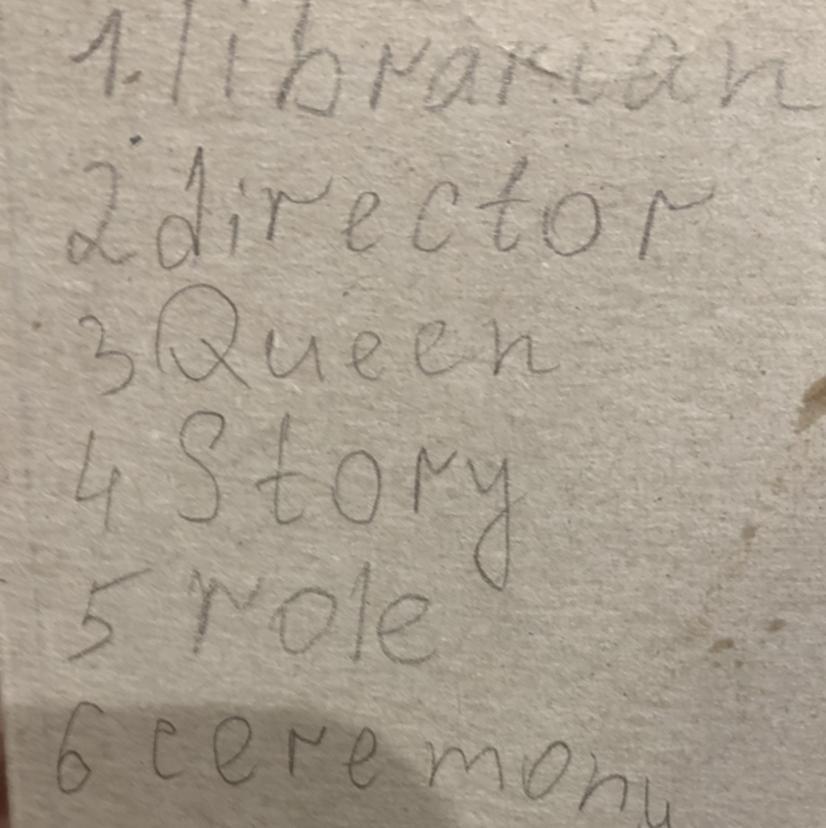 1. librarian
2 director
3 Queen
4 Story
5 role
6 ceremony